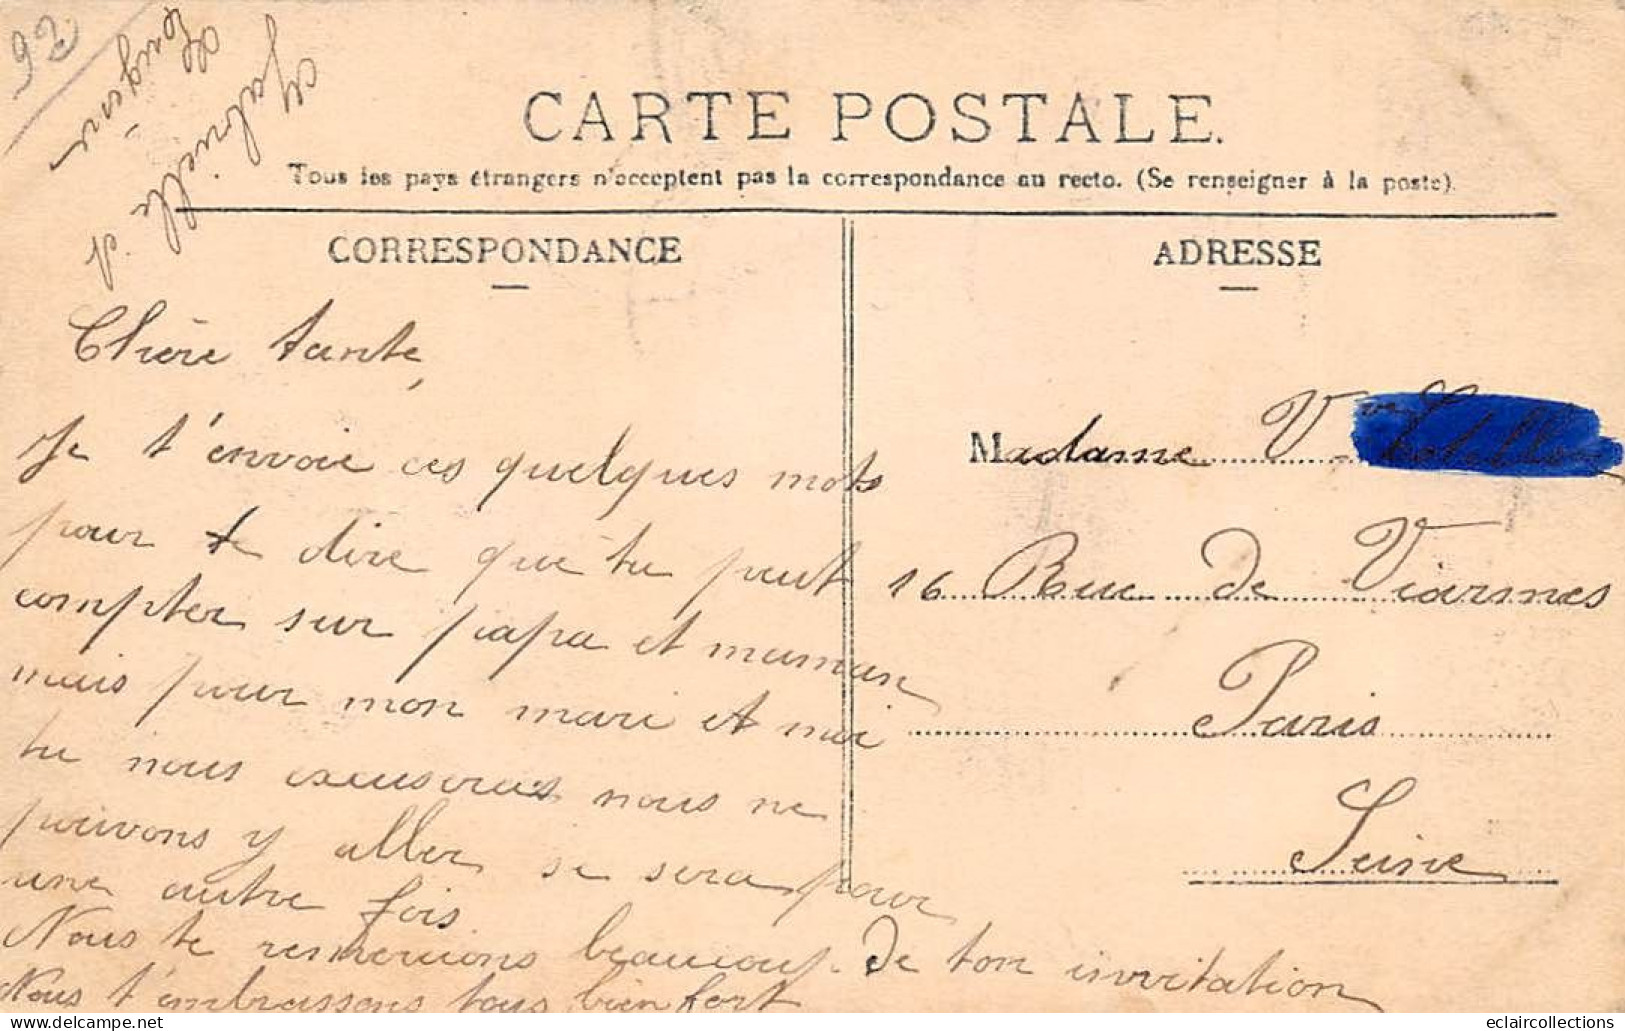 92
Gabrielle et
Eugène
CARTE POSTALE.
Tous les pays étrangers n'acceptent pas la correspondance au recto. (Se renseigner à la poste)
CORRESPONDANCE
Chère tante,
Je t'envoie ces quelques mots
pour te dire que tu peut
compter sur papa et maman
mais pour mon mari et moi
tu nous excuserais nous ne
pouvons y aller se sera pour
une autre fois
Nous te remercions beaucoup de ton invitation
Nous t'embrassons tous bien fort
ADRESSE
Madame Vve
16 Rue de Viarmes
Paris
Seine
eclaircollections